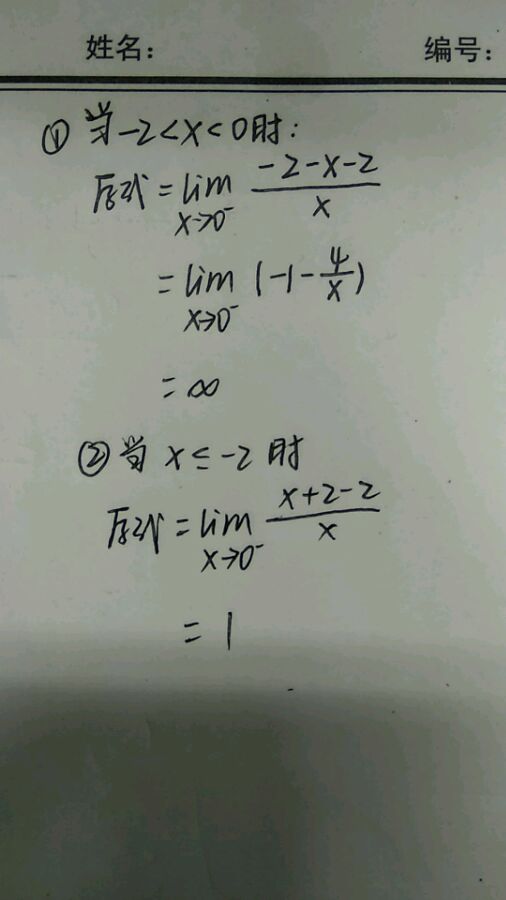 姓名： 编号：
① 当-2<x<0时:
原式 = lim x→0⁻ (-2-x-2)/x
= lim x→0⁻ (-1-4/x)
= ∞
② 当 x≤-2 时
原式 = lim x→0⁻ (x+2-2)/x
= 1